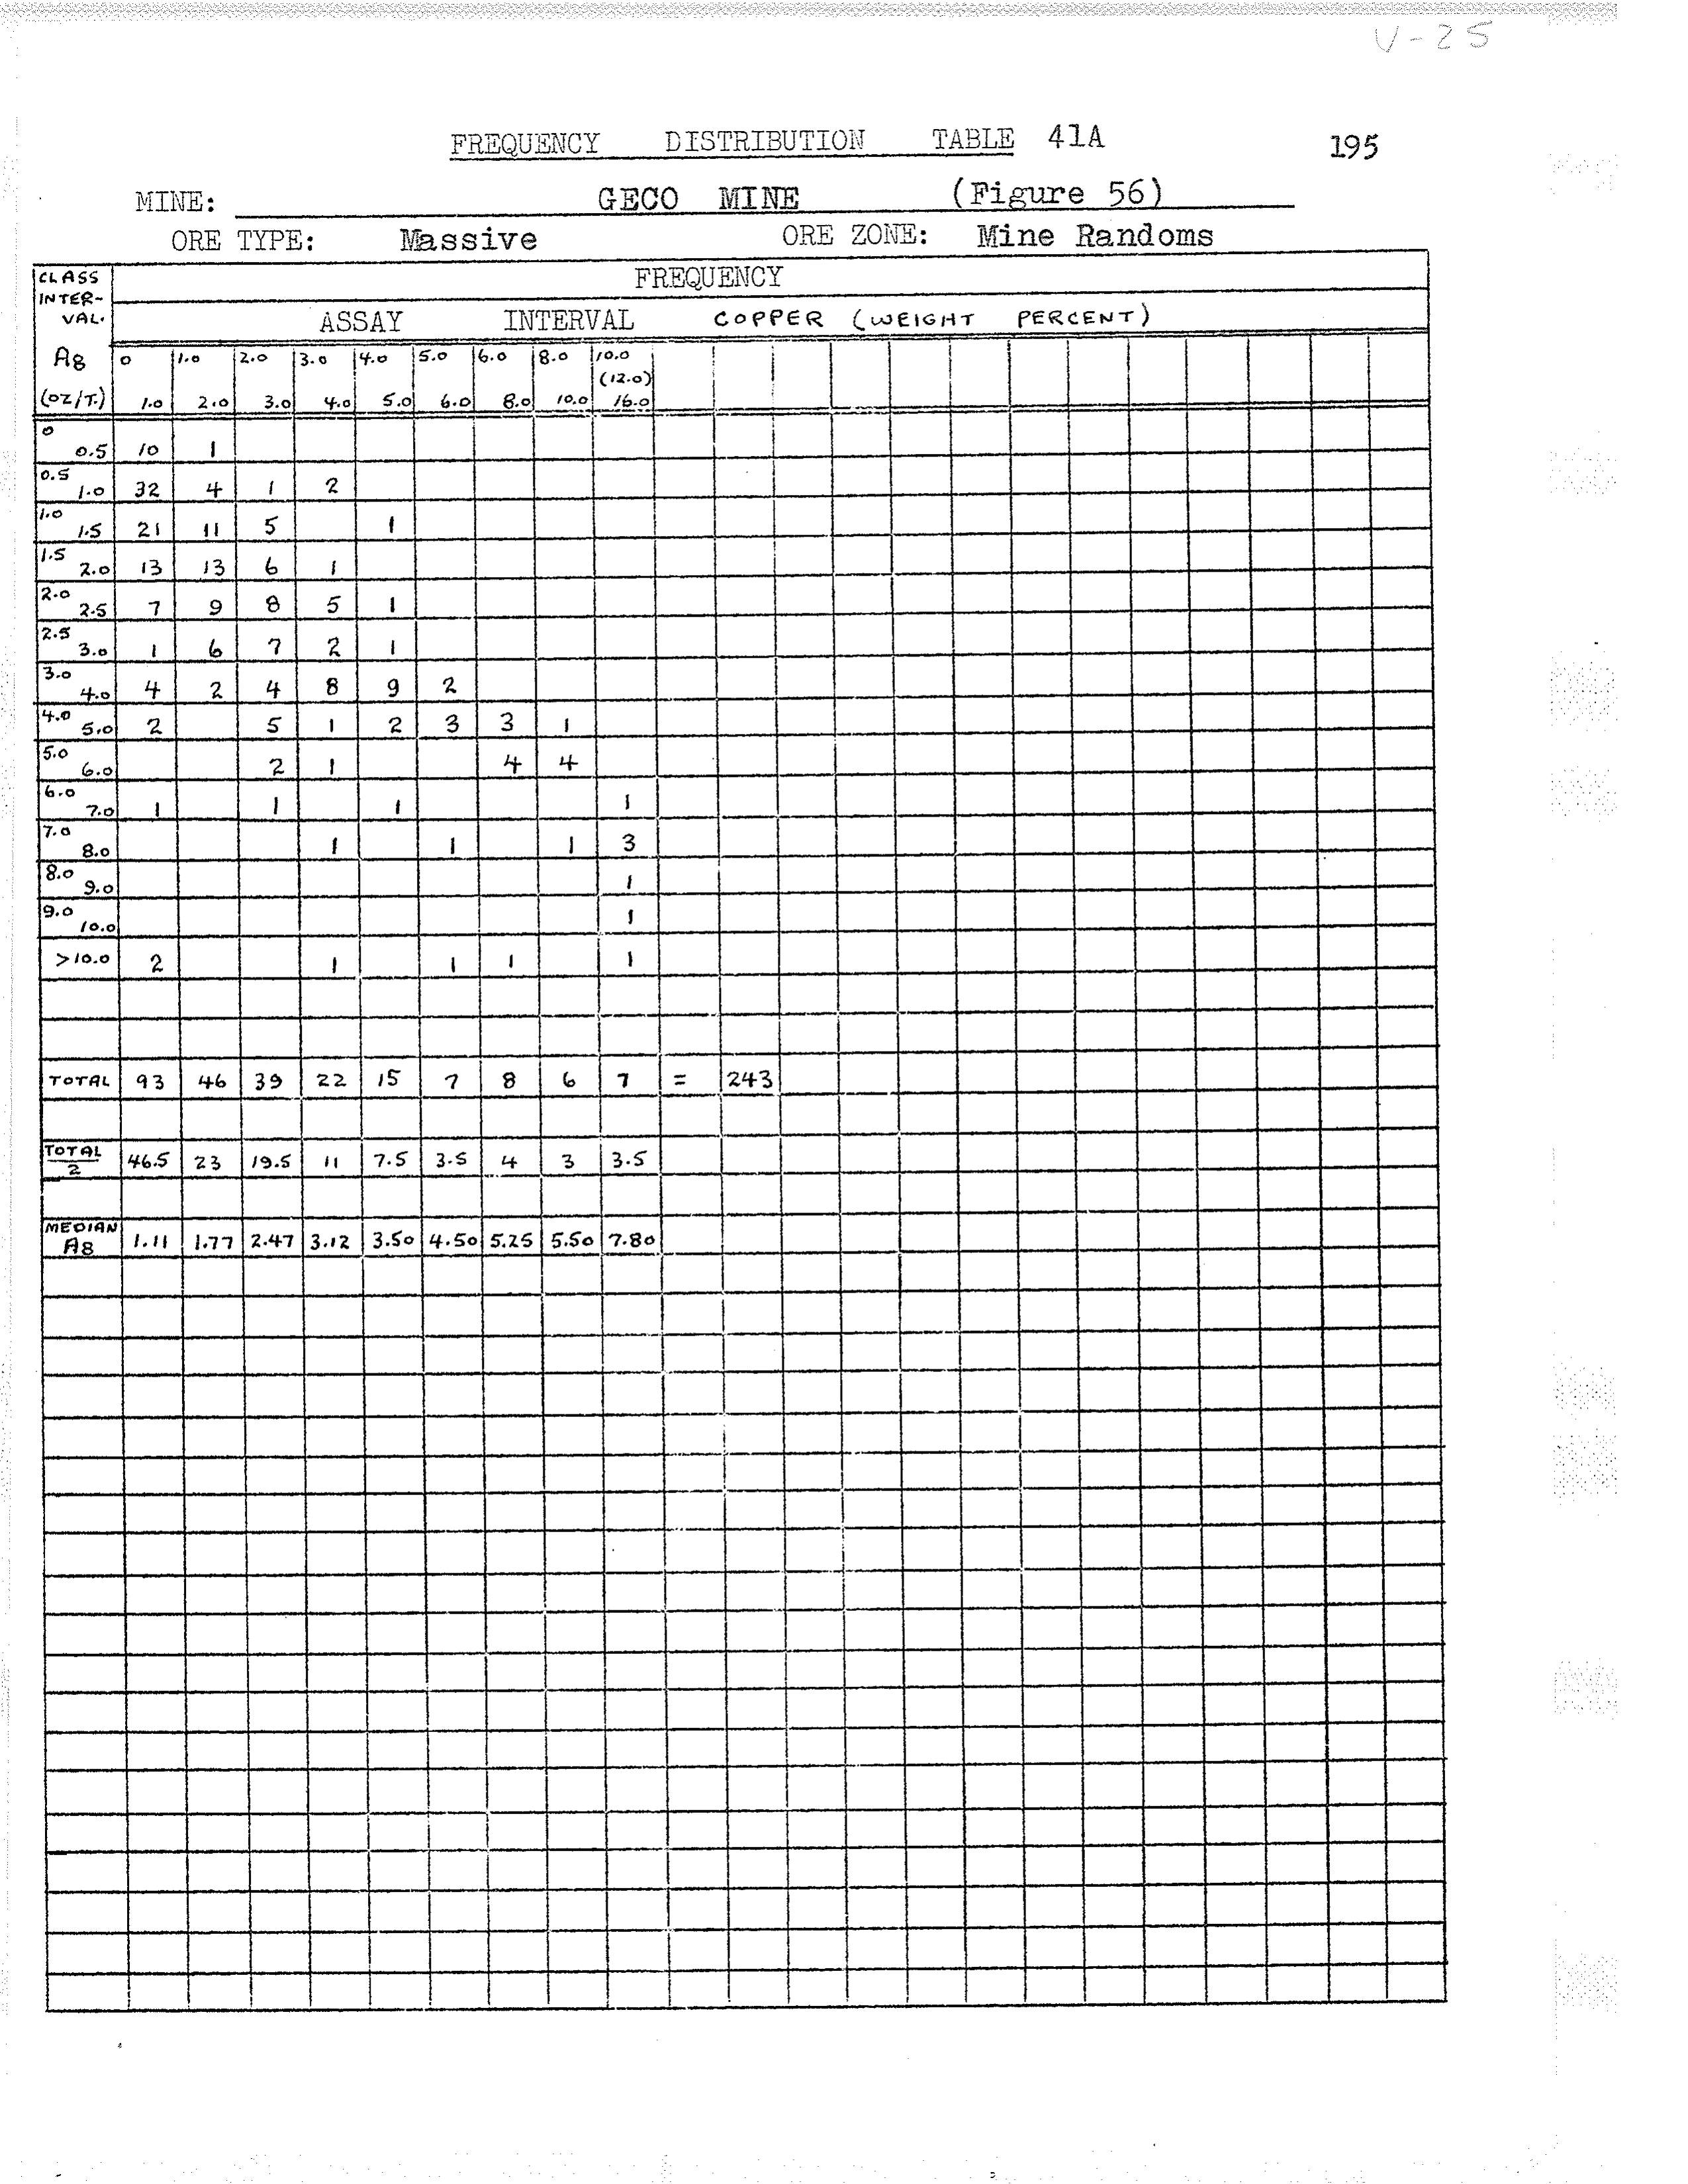 V-25
FREQUENCY DISTRIBUTION TABLE 41A
195
MINE: GECO MINE (Figure 56)
ORE TYPE: Massive ORE ZONE: Mine Randoms
CLASS INTER-VAL. FREQUENCY
ASSAY INTERVAL COPPER (WEIGHT PERCENT)
Ag 0 1.0 2.0 3.0 4.0 5.0 6.0 8.0 10.0
(12.0)
(OZ/T.) 1.0 2.0 3.0 4.0 5.0 6.0 8.0 10.0 16.0
0 0.5 10 1
0.5 1.0 32 4 1 2
1.0 1.5 21 11 5 1
1.5 2.0 13 13 6 1
2.0 2.5 7 9 8 5 1
2.5 3.0 1 6 7 2 1
3.0 4.0 4 2 4 8 9 2
4.0 5.0 2 5 1 2 3 3 1
5.0 6.0 2 1 4 4
6.0 7.0 1 1 1 1
7.0 8.0 1 1 1 3
8.0 9.0 1
9.0 10.0 1
>10.0 2 1 1 1 1
TOTAL 93 46 39 22 15 7 8 6 7 = 243
TOTAL/2 46.5 23 19.5 11 7.5 3.5 4 3 3.5
MEDIAN Ag 1.11 1.77 2.47 3.12 3.50 4.50 5.25 5.50 7.80